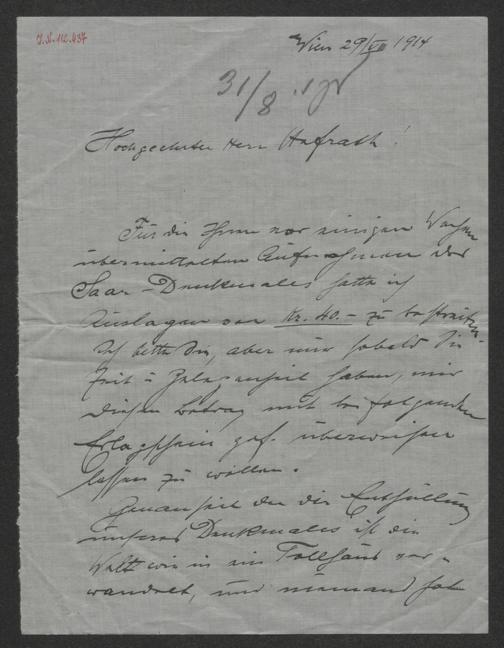 J.N. 112.437
Wien 29/VIII 1914
31/8
Hochgeehrter Herr Hofrath!
Für die Ihnen vor einigen Wochen
übermittelten Aufnahmen des
Saar-Denkmales hatte ich
Auslagen von Kr. 40.– zu bestreiten.
Ich bitte Sie, aber nur sobald Sie
Zeit u Gelegenheit haben, mir
diesen Betrag mit beifolgenden
Erlagschein gef. überweisen
lassen zu wollen.
der die Enthüllung
unseres Denkmales ist die
Welt wie in ein Tollhaus ver-
wandelt, und niemand hat